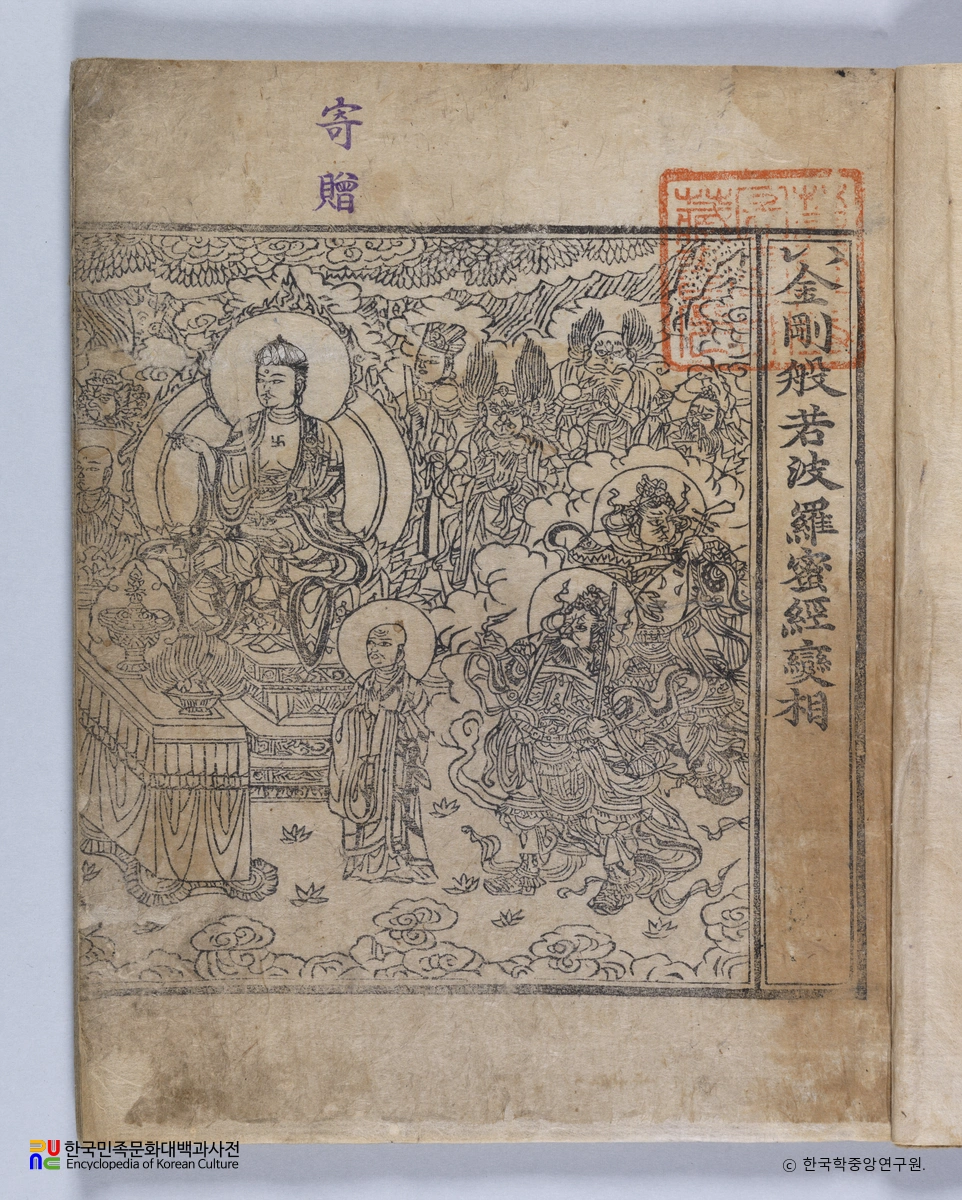 寄贈
金剛般若波羅蜜經變相
한국민족문화대백과사전
Encyclopedia of Korean Culture
ⓒ 한국학중앙연구원.